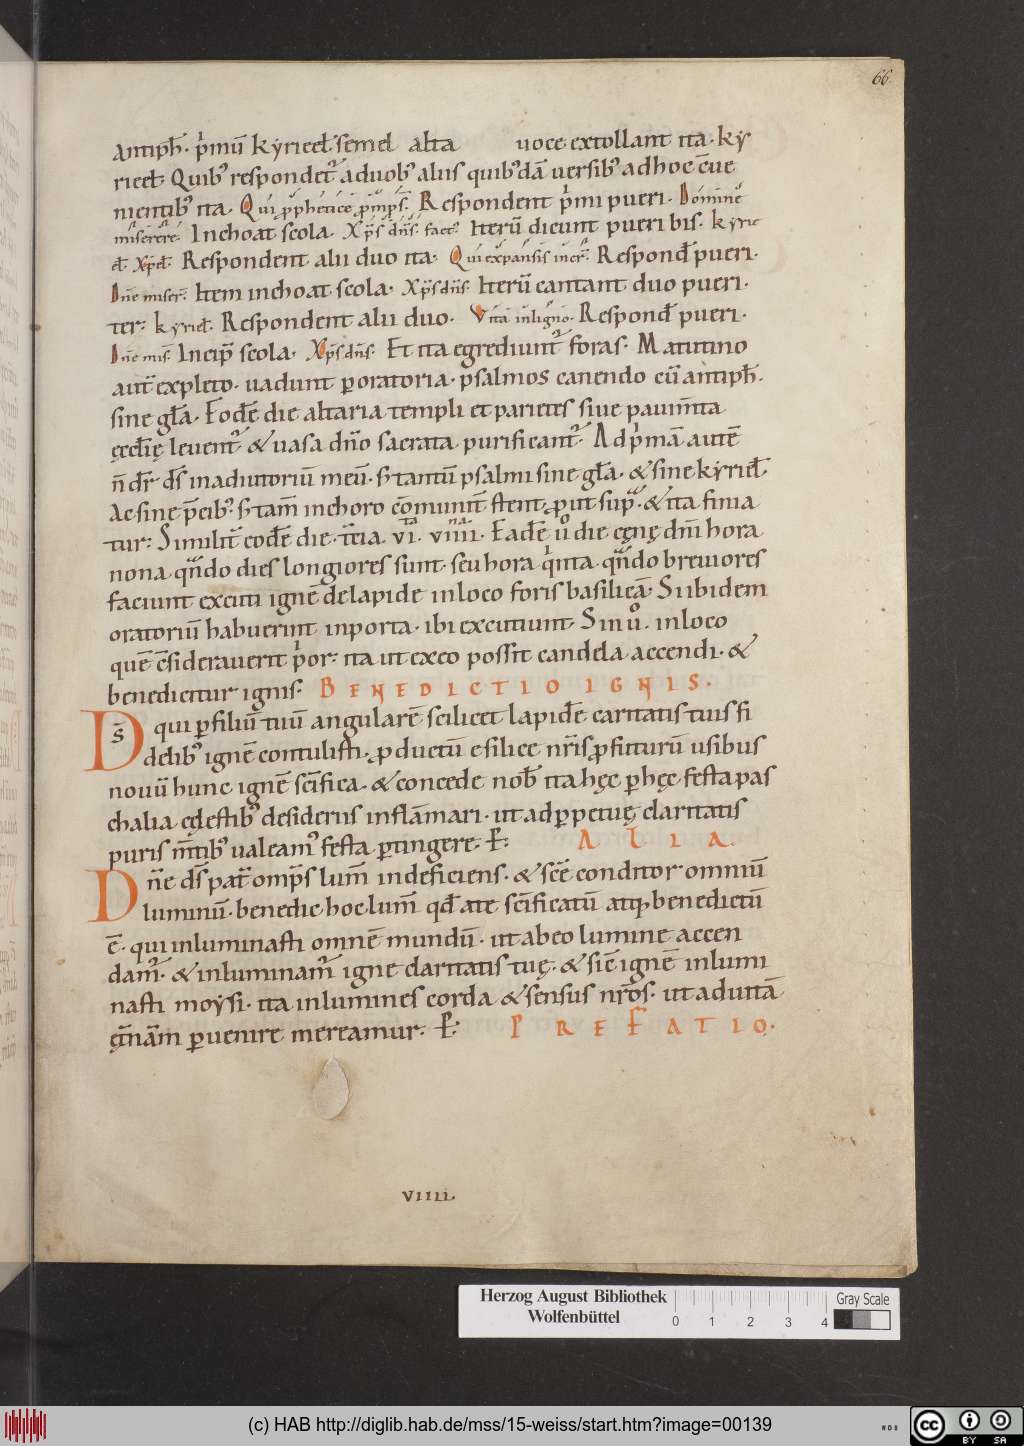 66
antiph̄. p̍mū kẏrieel̄ semel alta uoce extollant ita. kẏ
rieel̄. Quib; respondet᷑ a duob; aliis quib;dā uersib; ad hoc cōue
nientib; ita. Qui p̄phetice p̄mp̄s. Respondent p̍mi pueri. Domine
miserere. Inchoat scola. Xp̄s dn̄s. fact᷑. Iterū dicunt pueri bis. kyrie
el̄. Xp̄el̄. Respondent alii duo ita. Qui expansis incr̄. Respond̄ pueri.
Dn̄e miser̄. Item inchoat scola. Xp̄s dn̄s. Iterū cantant duo pueri.
ter. kyriel̄. Respondent alii duo. Vita in ligno. Respond̄ pueri.
Dn̄e mis̄. Incip̄ scola. Xp̄s dn̄s. Et ita egrediunt᷑ foras. Matutino
aut̄ expleto. uadunt ꝑ oratoria. psalmos canendo cū antiph̄.
sine gl̄a. Eodē die altaria templi et parietes siue pauim̄ta
ęccl̄ię leuent᷑ & uasa dn̄o sacrata purificant᷑. Ad p̍mā autē
n̄ dr̄ ds̄ in adiutoriū meū. s; tantū psalmi sine gl̄a. & sine kẏriel̄.
Ac sine p̄cib; s; tam̄ in choro cōmunit̄ stent, ꝓut sup̄. & ita finia
tur. Similit̄ eodē die. t̄cia. vi.ta viiii.na Eadē ů die cęnę dn̄i hora
nona qn̄do dies longiores sunt. seu hora q̍nta qn̄do breuiores
faciunt excuti ignē de lapide in loco foris basilicā. Si ibidem
oratoriū habuerint in porta. ibi excutiunt. Sin ů. in loco
quē c̄siderauerit p̍or. ita ut ex eo possit candela accendi. &
benedicitur ignis. BENEDICTIO IGNIS.
Ds̄ qui ꝑ filiū tuū angularē scilicet lapidē caritatis tuis fi
delib; ignē contulisti. ꝓductū e silice nr̄is ꝓfitturū usibus
nouū hunc ignē sc̄ifica. & concede nob̄ ita hęc ꝑ hęc festa pas
chalia cęlestib; desideriis inflāmari. ut ad ꝑpetuę claritatis
puris m̄tib; ualeam᷑ festa ꝑtingere. P̄. ALIA.
Dn̄e ds̄ pat̄ omp̄s lum̄ indeficiens. & sc̄e conditor omniū
luminū. benedic hoc lum̄ qd̄ a te sc̄ificatū atq; benedictū
ē. qui inluminasti omnē mundū. ut ab eo lumine accen
dam᷑. & inluminam᷑ igne claritatis tuę. & sic̄ ignē inlumi
nasti moẏsi. ita inlumines corda & sensus nr̄os. ut ad uitā
ęt̄nām ꝑuenire mereamur. P̄. PREFATIO.
VIIII.
Herzog August Bibliothek
Wolfenbüttel
0 1 2 3 4
Gray Scale
(c) HAB http://diglib.hab.de/mss/15-weiss/start.htm?image=00139
cc BY SA